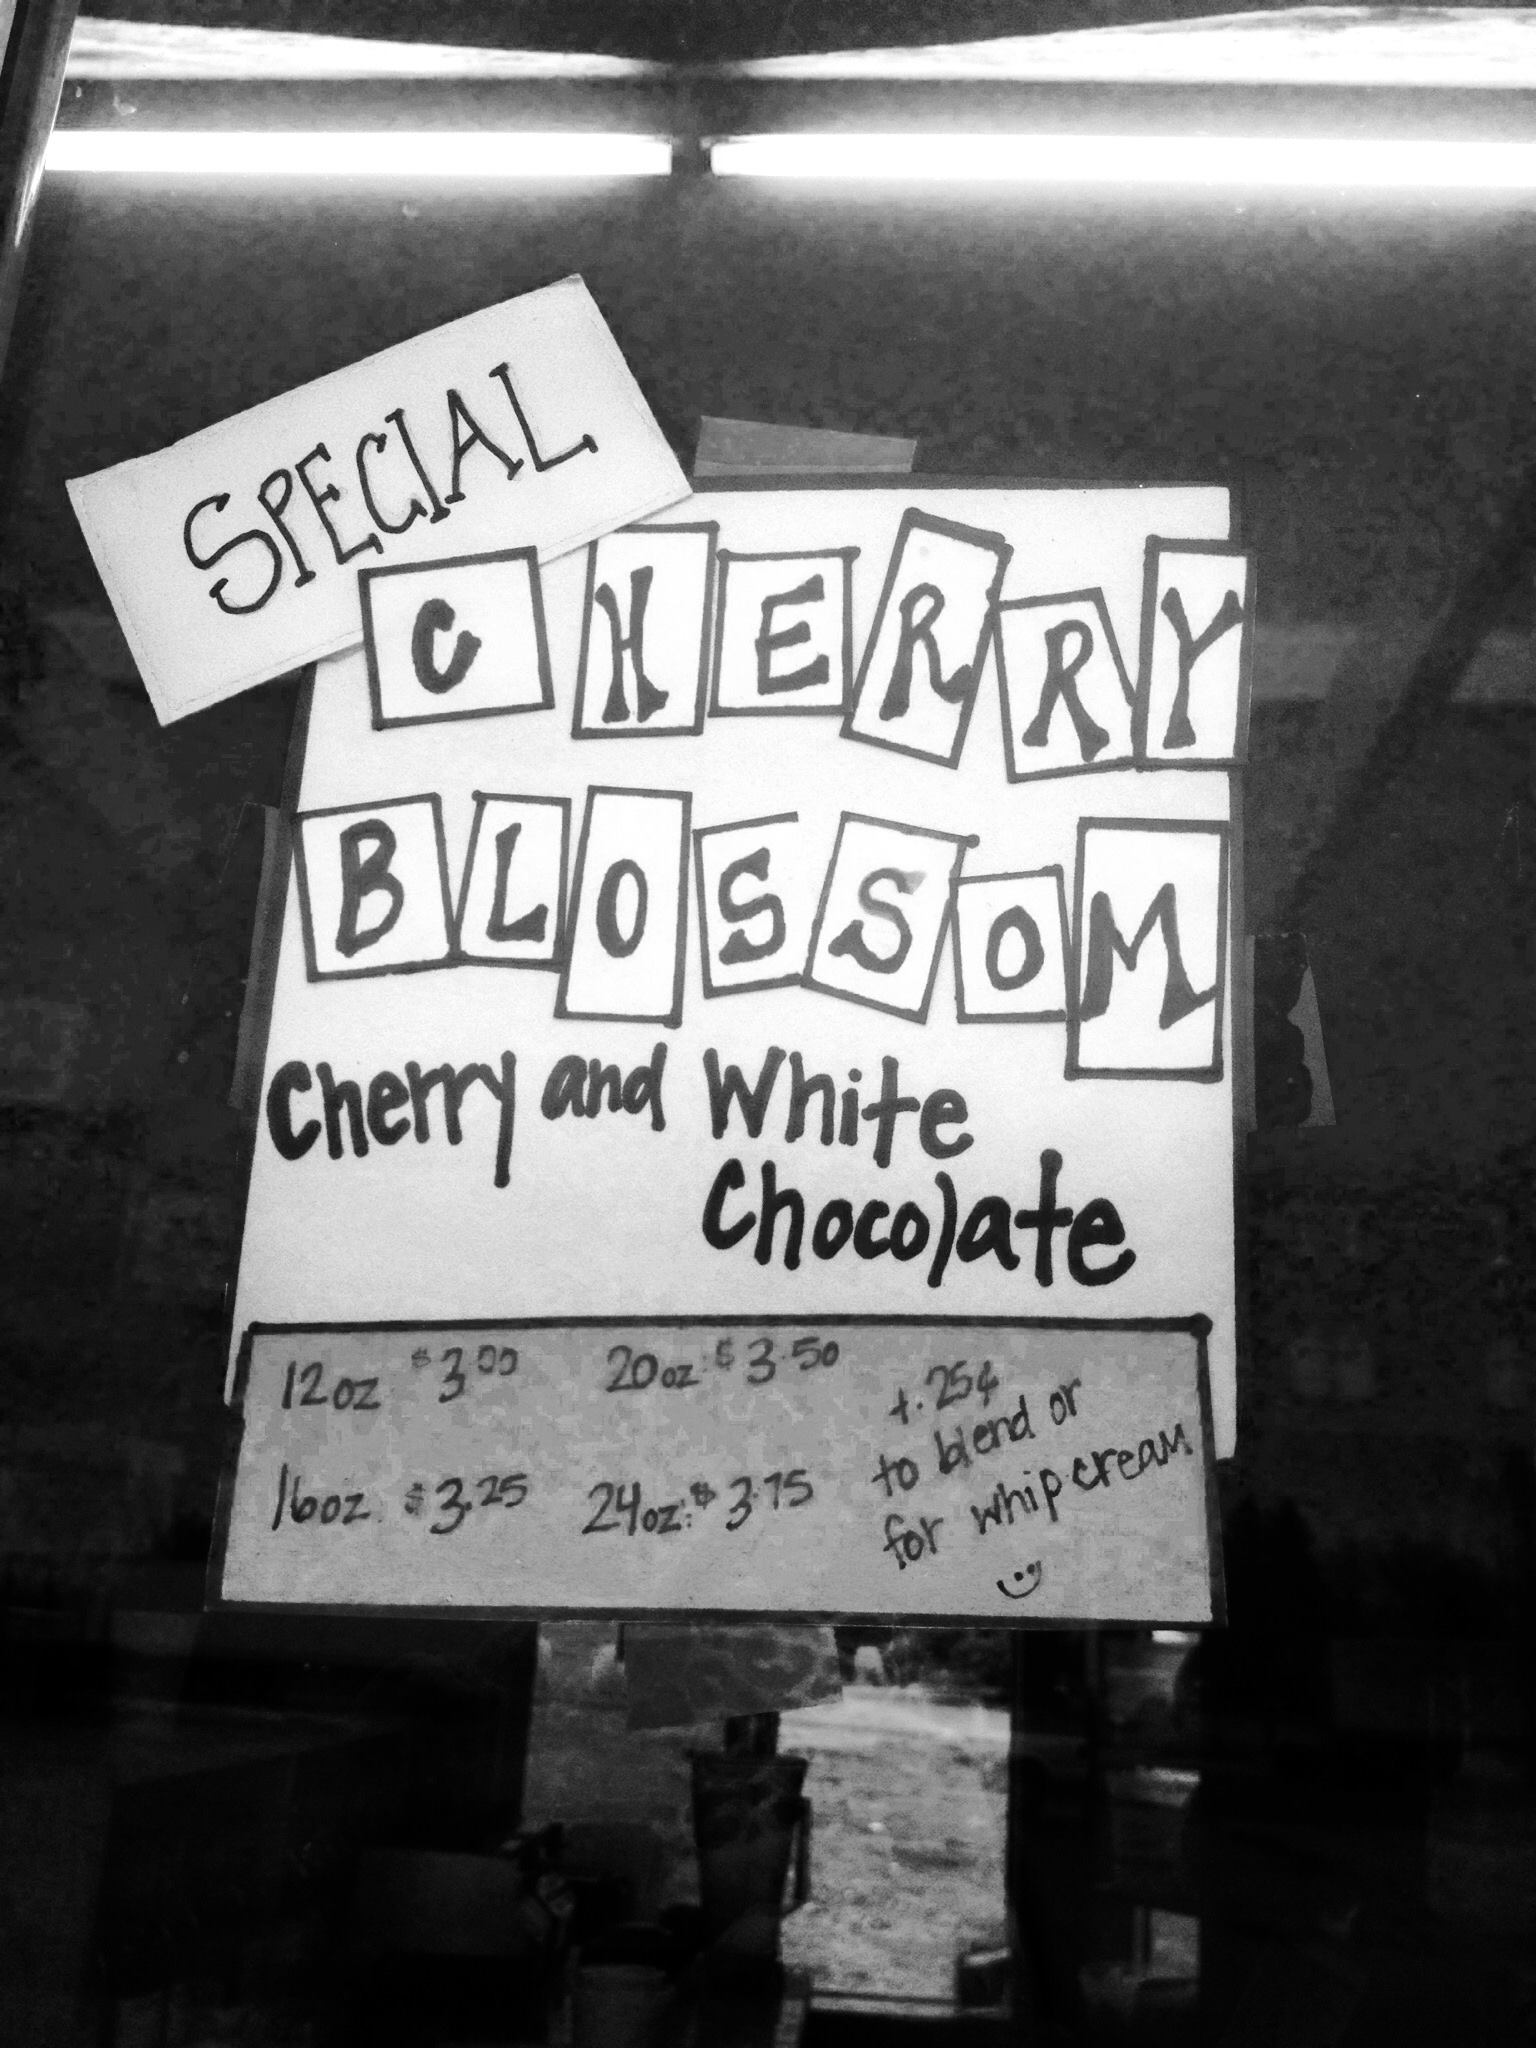 SPECIAL
CHERRY
BLOSSOM
Cherry and White
Chocolate
12oz $3.00
20oz: $3.50
16oz. $3.25
24oz: $3.75
+.25¢
to blend or
for whip cream